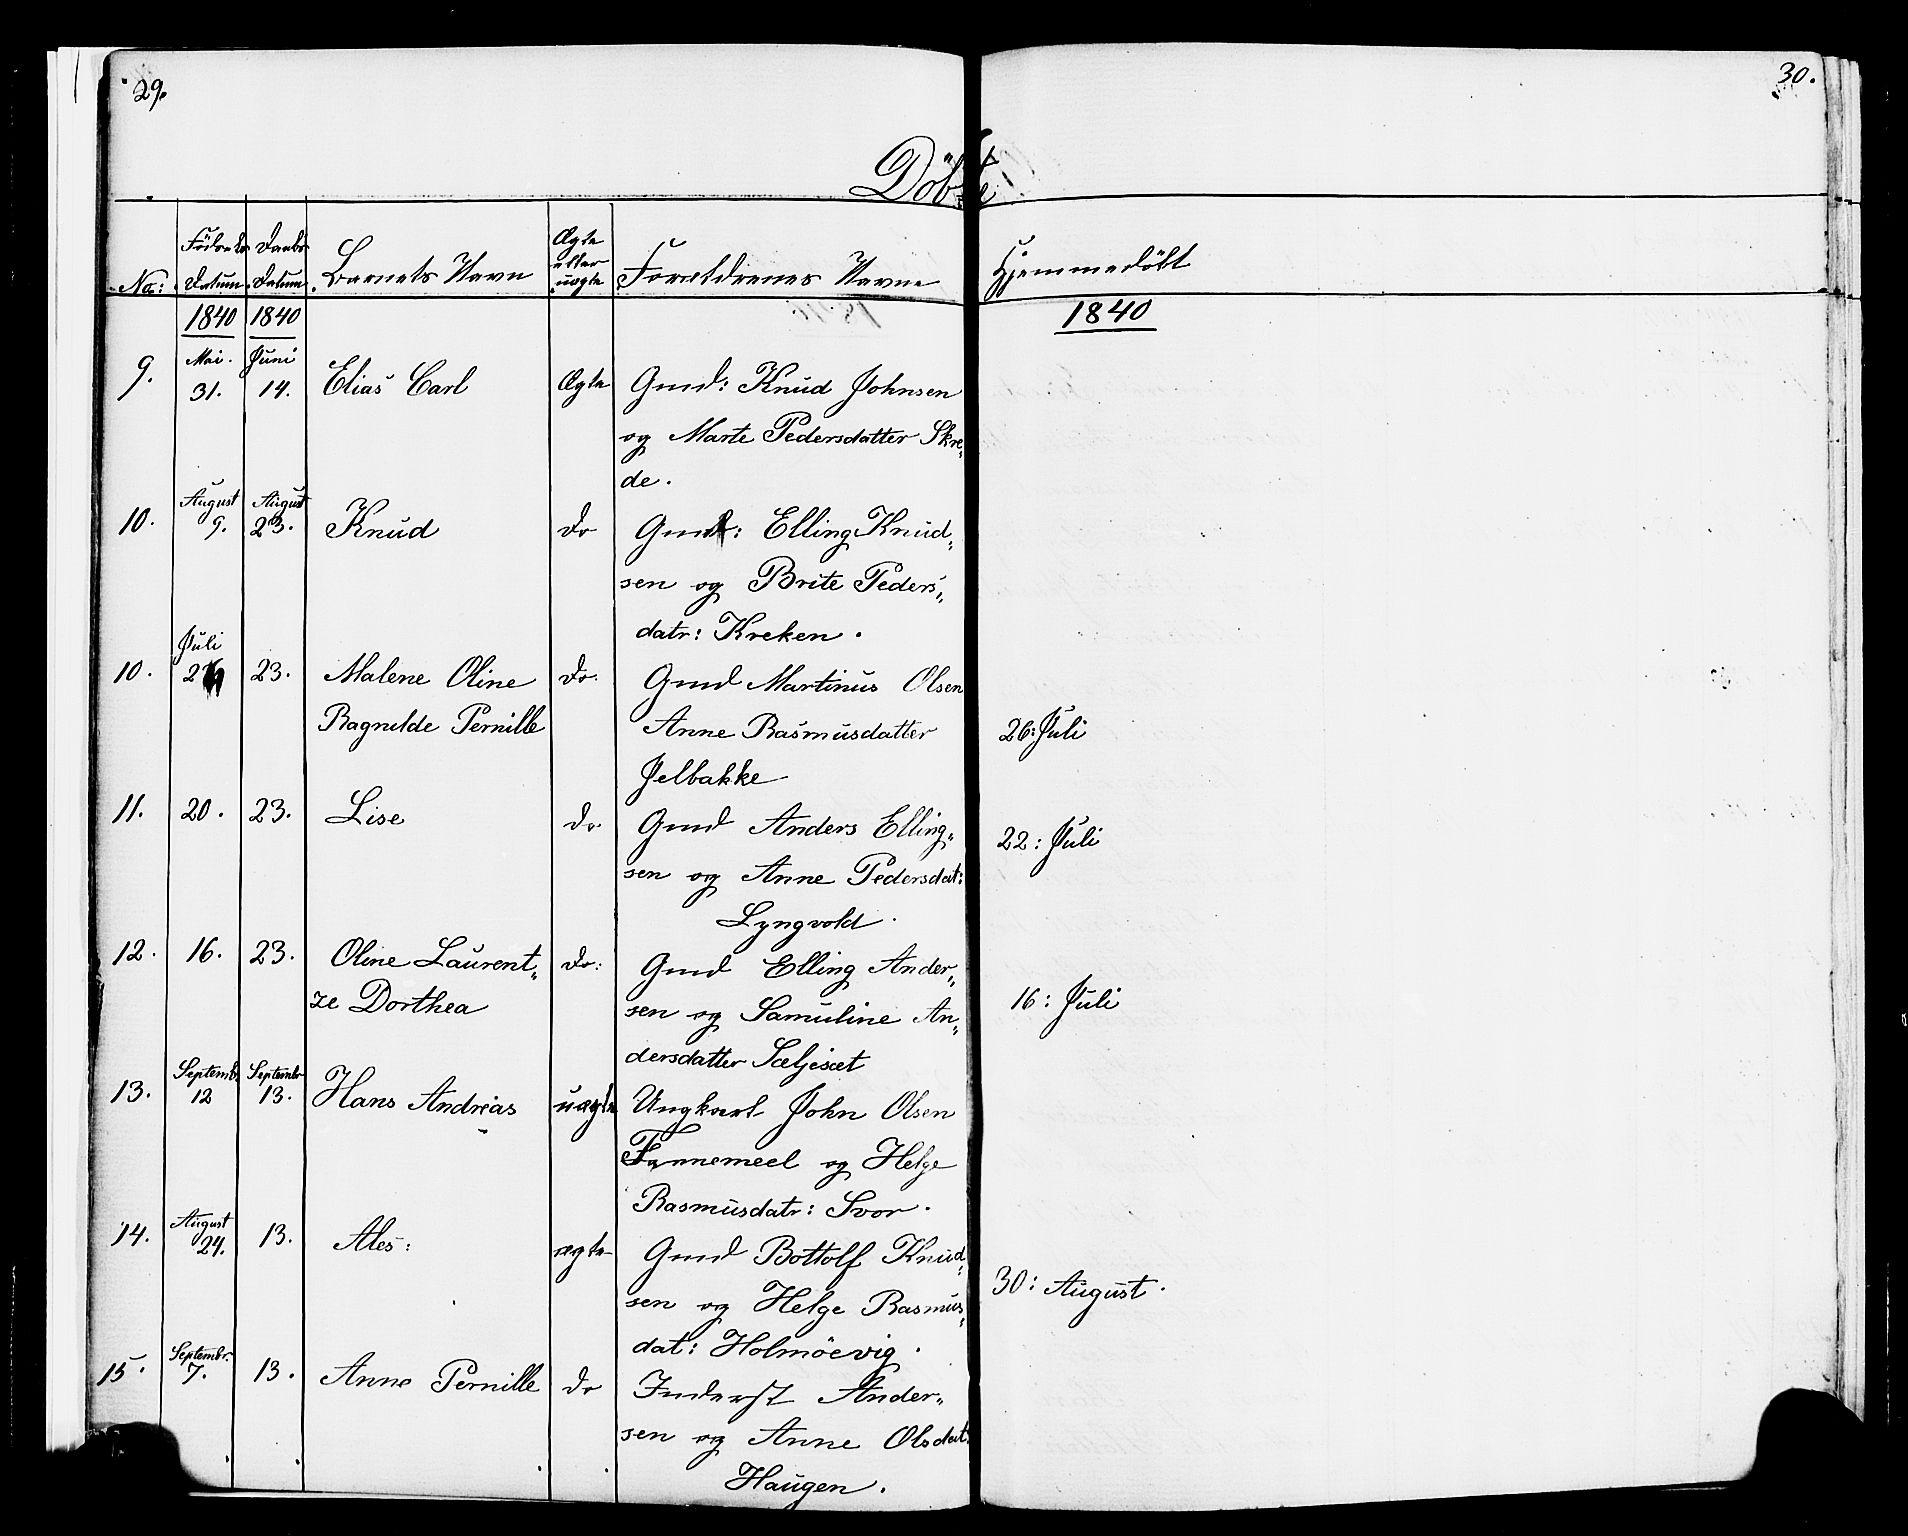 29.
30.
Döbte
No: Födsels Datum. Daabs Datum. Barnets Navn Ægte eller uægte Forældrenes Navne Hjemmedöbt
1840 1840 1840
9. Mai. 31. Juni 14. Elias Carl Ægte Gmd: Knud Johnsen
og Marte Pedersdatter Skre„
de.
10. August 9. August 23. Knud do Gmd: Elling Knud„
sen og Brite Peders„
datr: Kreken.
10. Juli 23. Malene Oline do. Gmd Martinus Olsen
Ragnilde Pernille Anne Rasmusdatter 26: Juli
Jelbakke
11. 20. 23. Lise do Gmd Anders Elling„ 22: Juli
sen og Anne Pedersdat:
Lyngvold.
12. 16. 23. Oline Laurent„ do: Gmd Elling Ander„
ze Dorthea sen og Samuline An„ 16: Juli
dersdatter Sæljesæt
13. Septembr 12 Septembr 13. Hans Andreas uægte Ungkarl John Olsen
og Helge
Rasmusdatr: Svor.
14. August 24. 13. Ales: ægte Gmd Bottolf Knud„
sen og Helge Rasmus„ 30: August.
dat: Holmöevig.
15. Septembr. 7. 13. Anne Pernille do Inderst Ander„
sen og Anne Olsdat.
Haugen.